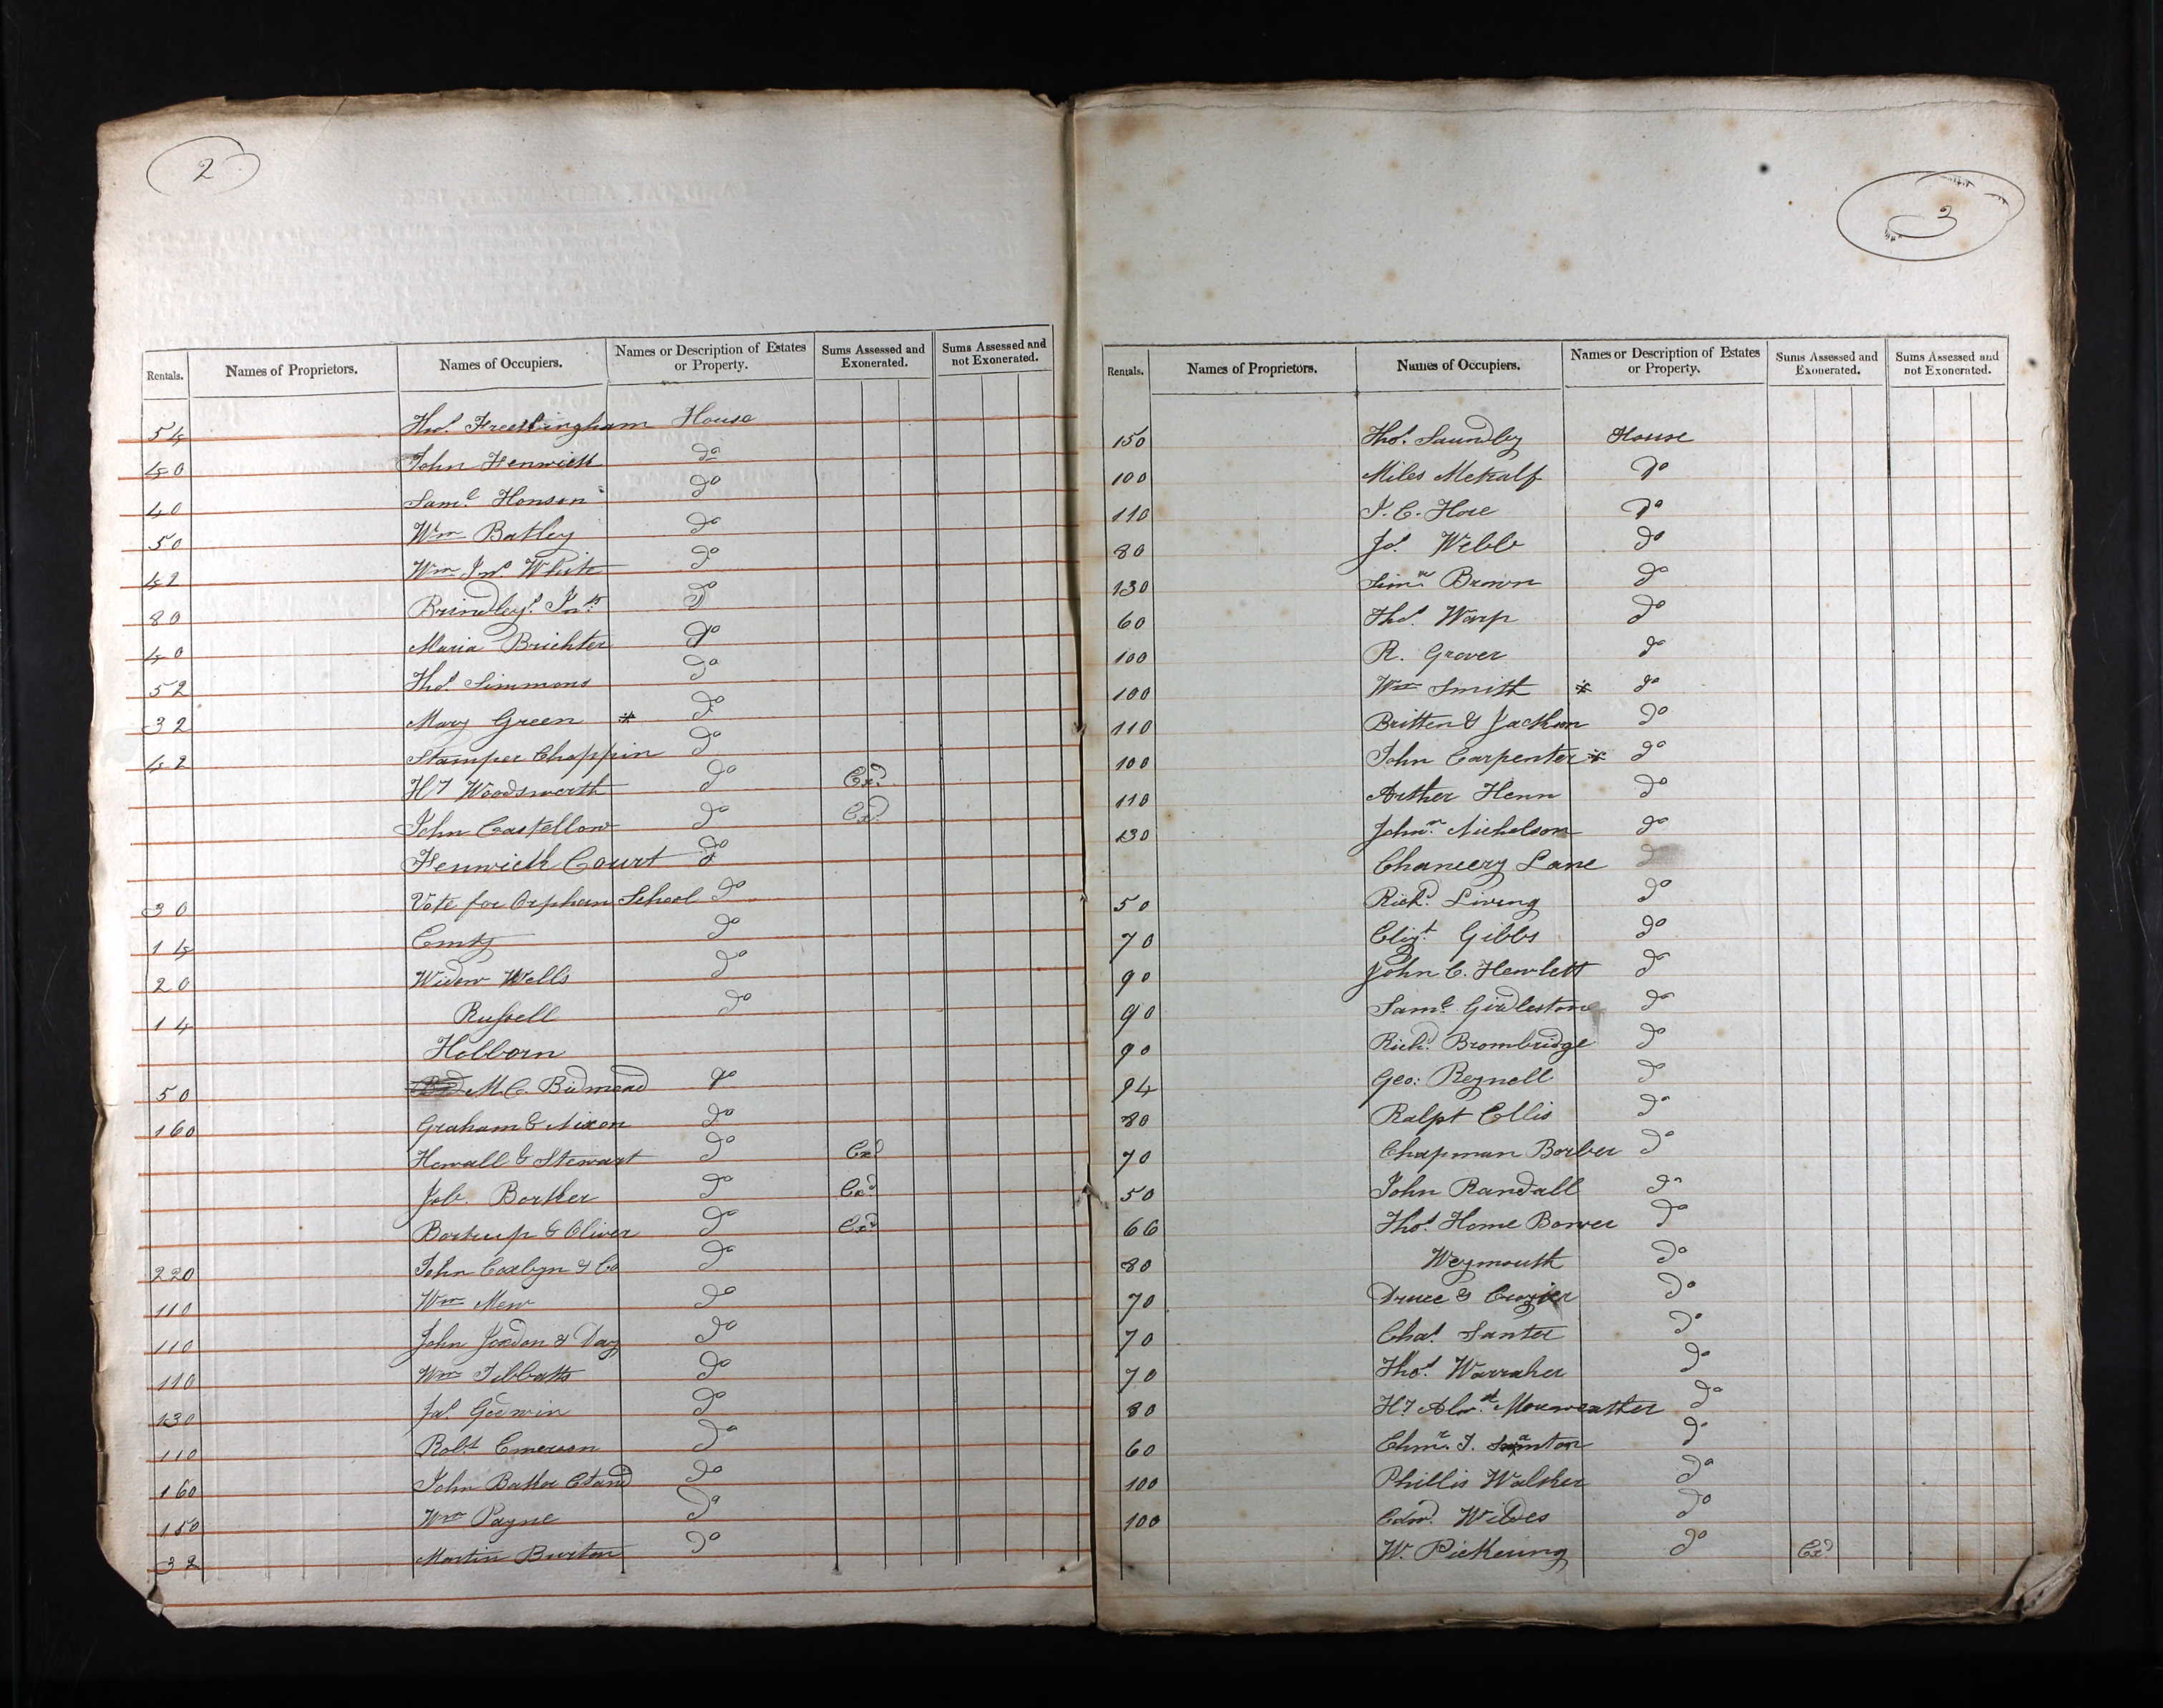 2
Rentals. Names of Proprietors. Names of Occupiers. Names or Description of Estates or Property. Sums Assessed and Exonerated. Sums Assessed and not Exonerated.
54 Thos. Freelingham House
40 John Fenwick do
40 Saml. Honson do
50 Wm Batley do
42 Wm Jno. White do
80 Brindleys do
40 Maria Brichter do
52 Thos. Simmons do
32 Mary Green * do
42 Stamper Chappin do
Hy Woodsworth do Exd.
John Castellow do Exd.
Fenwick Court do
30 Vote for Orphan School do
14 Emty do
20 Widow Wells do
14 Russell do
Holborn
50 M. C. Bidmead do
160 Graham & Nixon do
Howall & Stewart do Exd
Job. Borther do Exd.
Bortrup & Oliver do Exd.
220 John Corbyn & Co do
110 Wm Mew do
110 John Jordon & Day do
110 Wm Tibbatts do
130 Jas. Godwin do
110 Robt Emerson do
160 John Baker do
150 Wm Payne do
32 Martin Burton do
3
Rentals. Names of Proprietors. Names of Occupiers. Names or Description of Estates or Property. Sums Assessed and Exonerated. Sums Assessed and not Exonerated.
150 Thos. Saundby House
100 Miles Metcalf do
110 J. C. Hore do
80 Js. Webb do
130 Simn. Brown do
60 Thos. Warp do
100 R. Grover do
100 Wm Smith * do
110 Britten & Jackson do
100 John Carpenter * do
110 Arther Henn do
130 Johnn. Nicholson do
Chancery Lane
50 Richd. Living do
70 Elizt. Gibbs do
90 John C. Hewlett do
90 Saml. Girdlestone do
90 Richd. Brombridge do
94 Geo: Reynell do
80 Ralpt Ellis do
70 Chapman Borber do
50 John Randall do
66 Thos. Home Bower do
80 Weymouth do
70 Druce & do
70 Chas. Santer do
70 Thos. Warraker do
80 Hy Alxr. Mereweather do
60 do
100 Phillis Walker do
100 Edwd. Wildes do
W. Pickering do Exd.